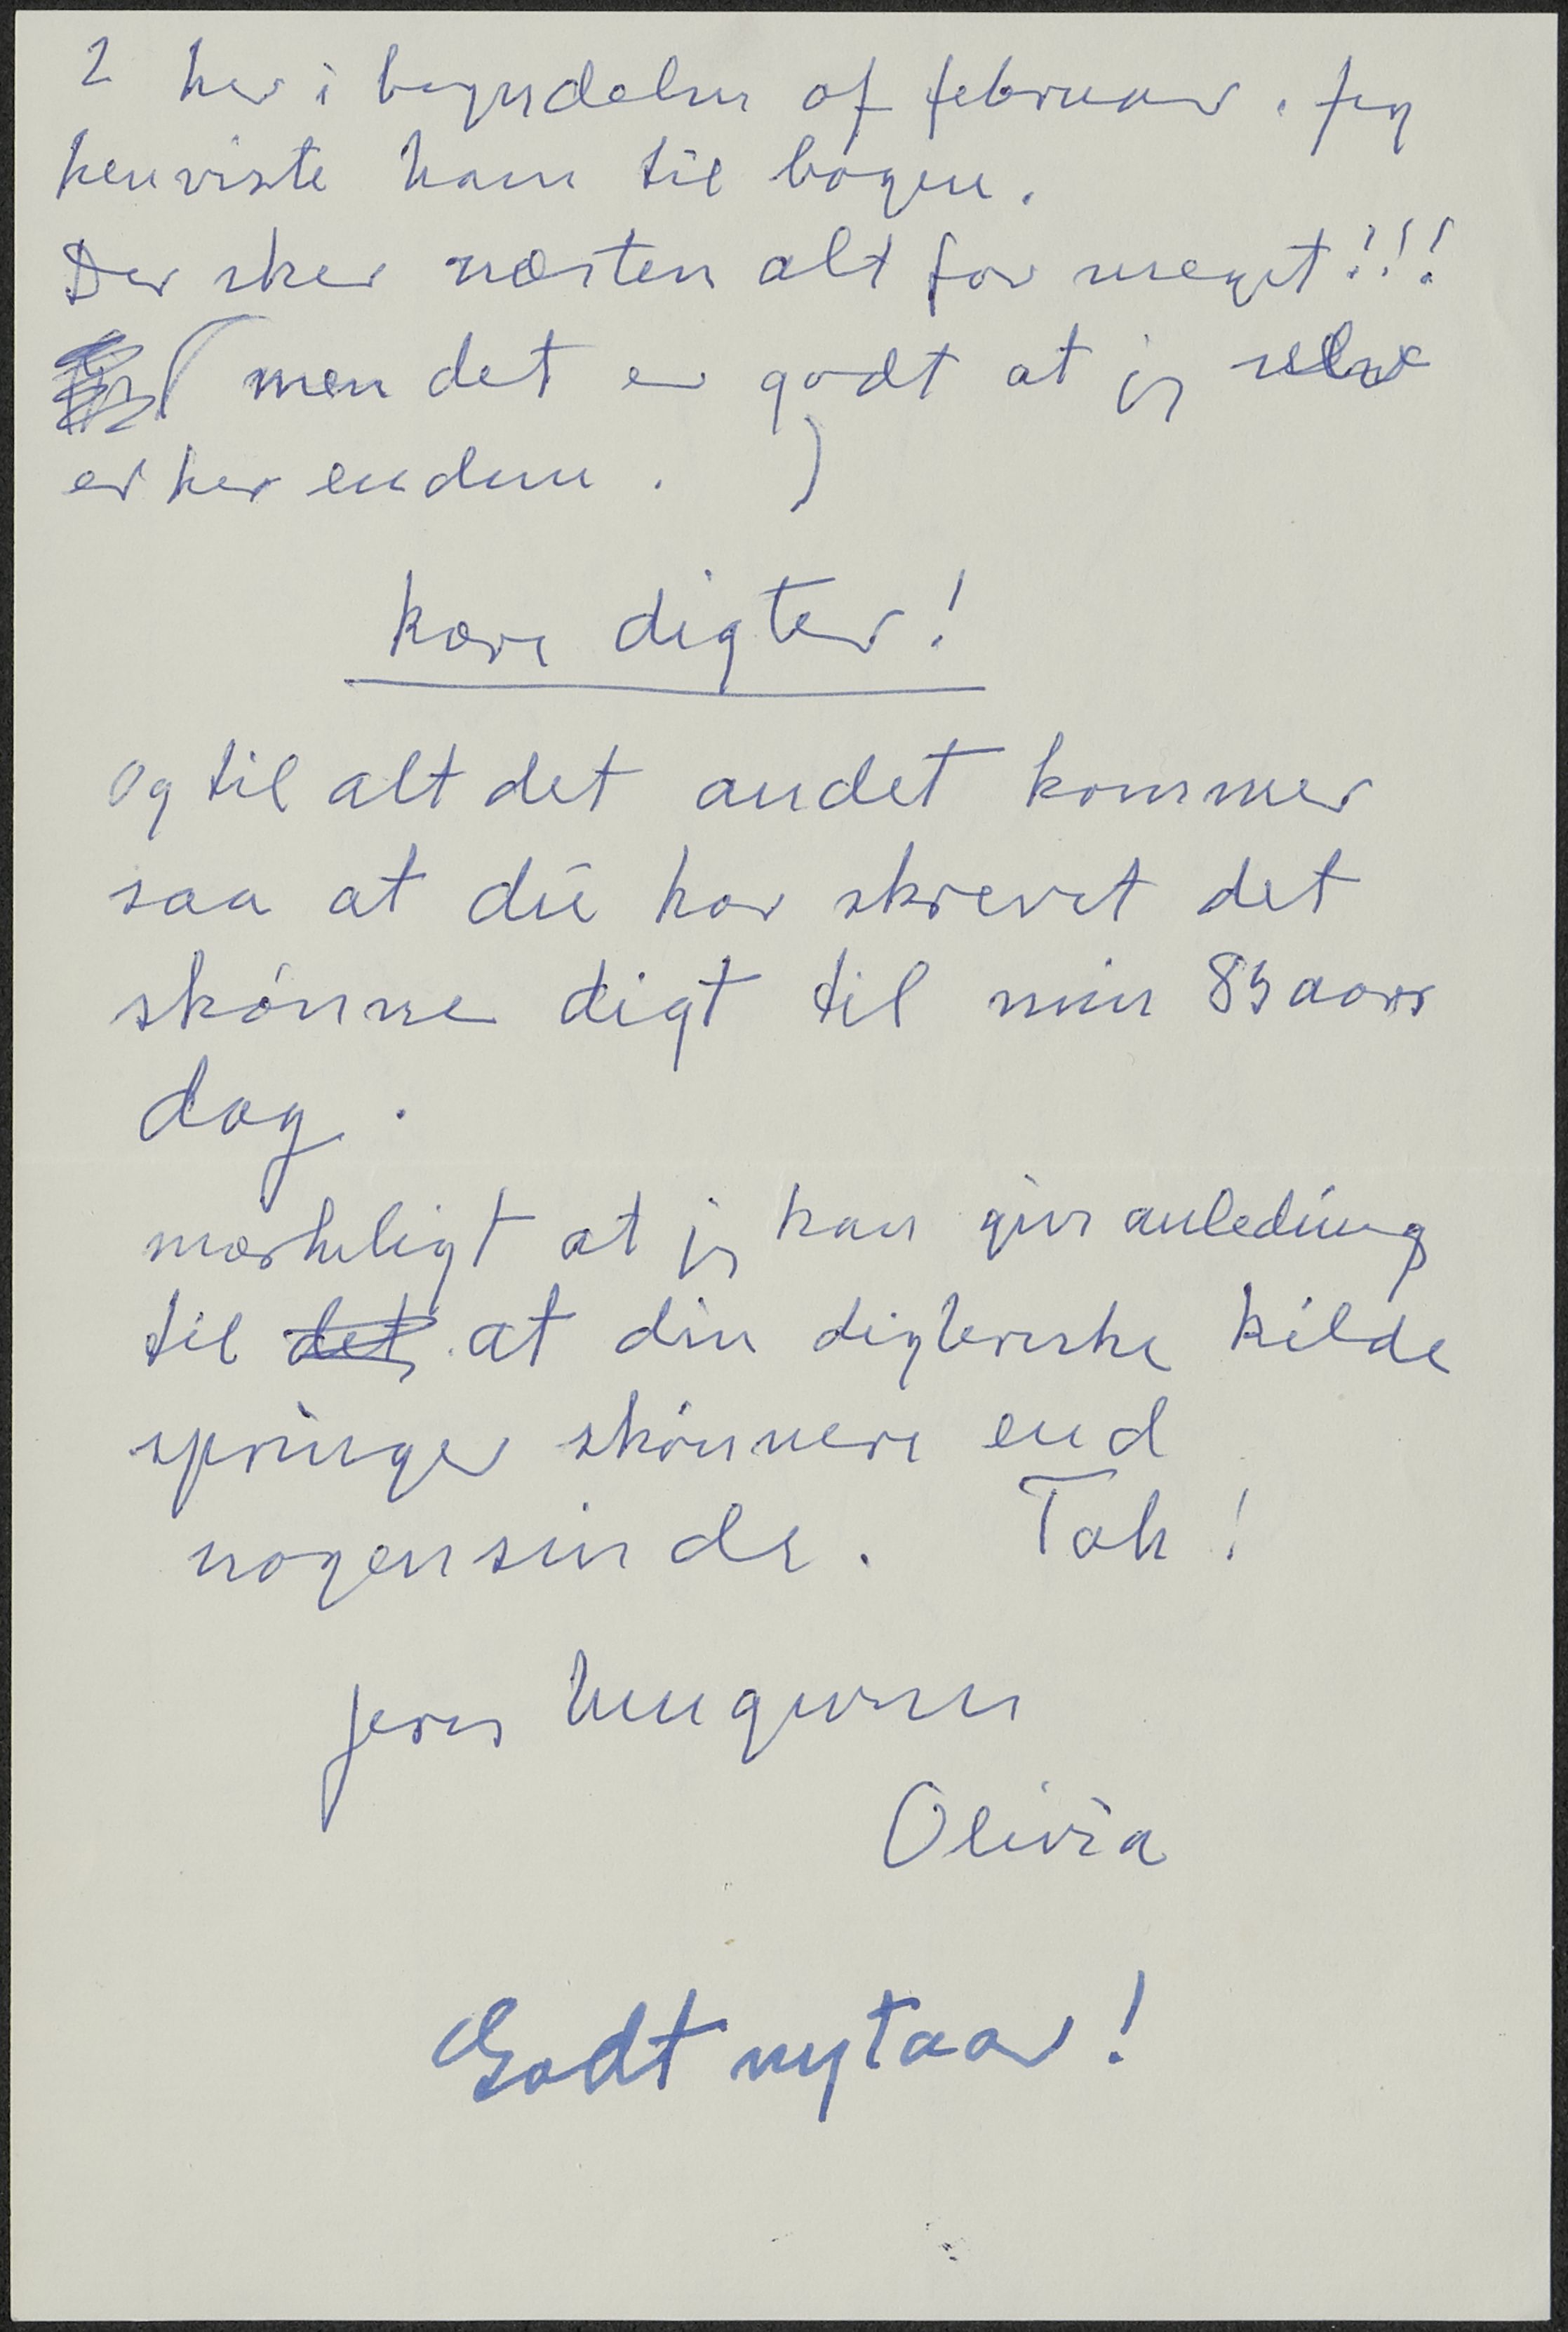 2 her i begyndelsen af februar. Jeg
henviste ham til bogen.
Der sker næsten alt for meget!!!
(men det er godt at jeg selv
er her endnu. )
kære digter!
Og til alt det andet kommer
saa at du har skrevet det
skønne digt til min 85 aars
dag.
mærkeligt at jeg kan give anledning
til det at din digteriske kilde
springer skønnere end
nogensinde. Tak!
Jeres hengivne
Olivia
Godt nytaar!